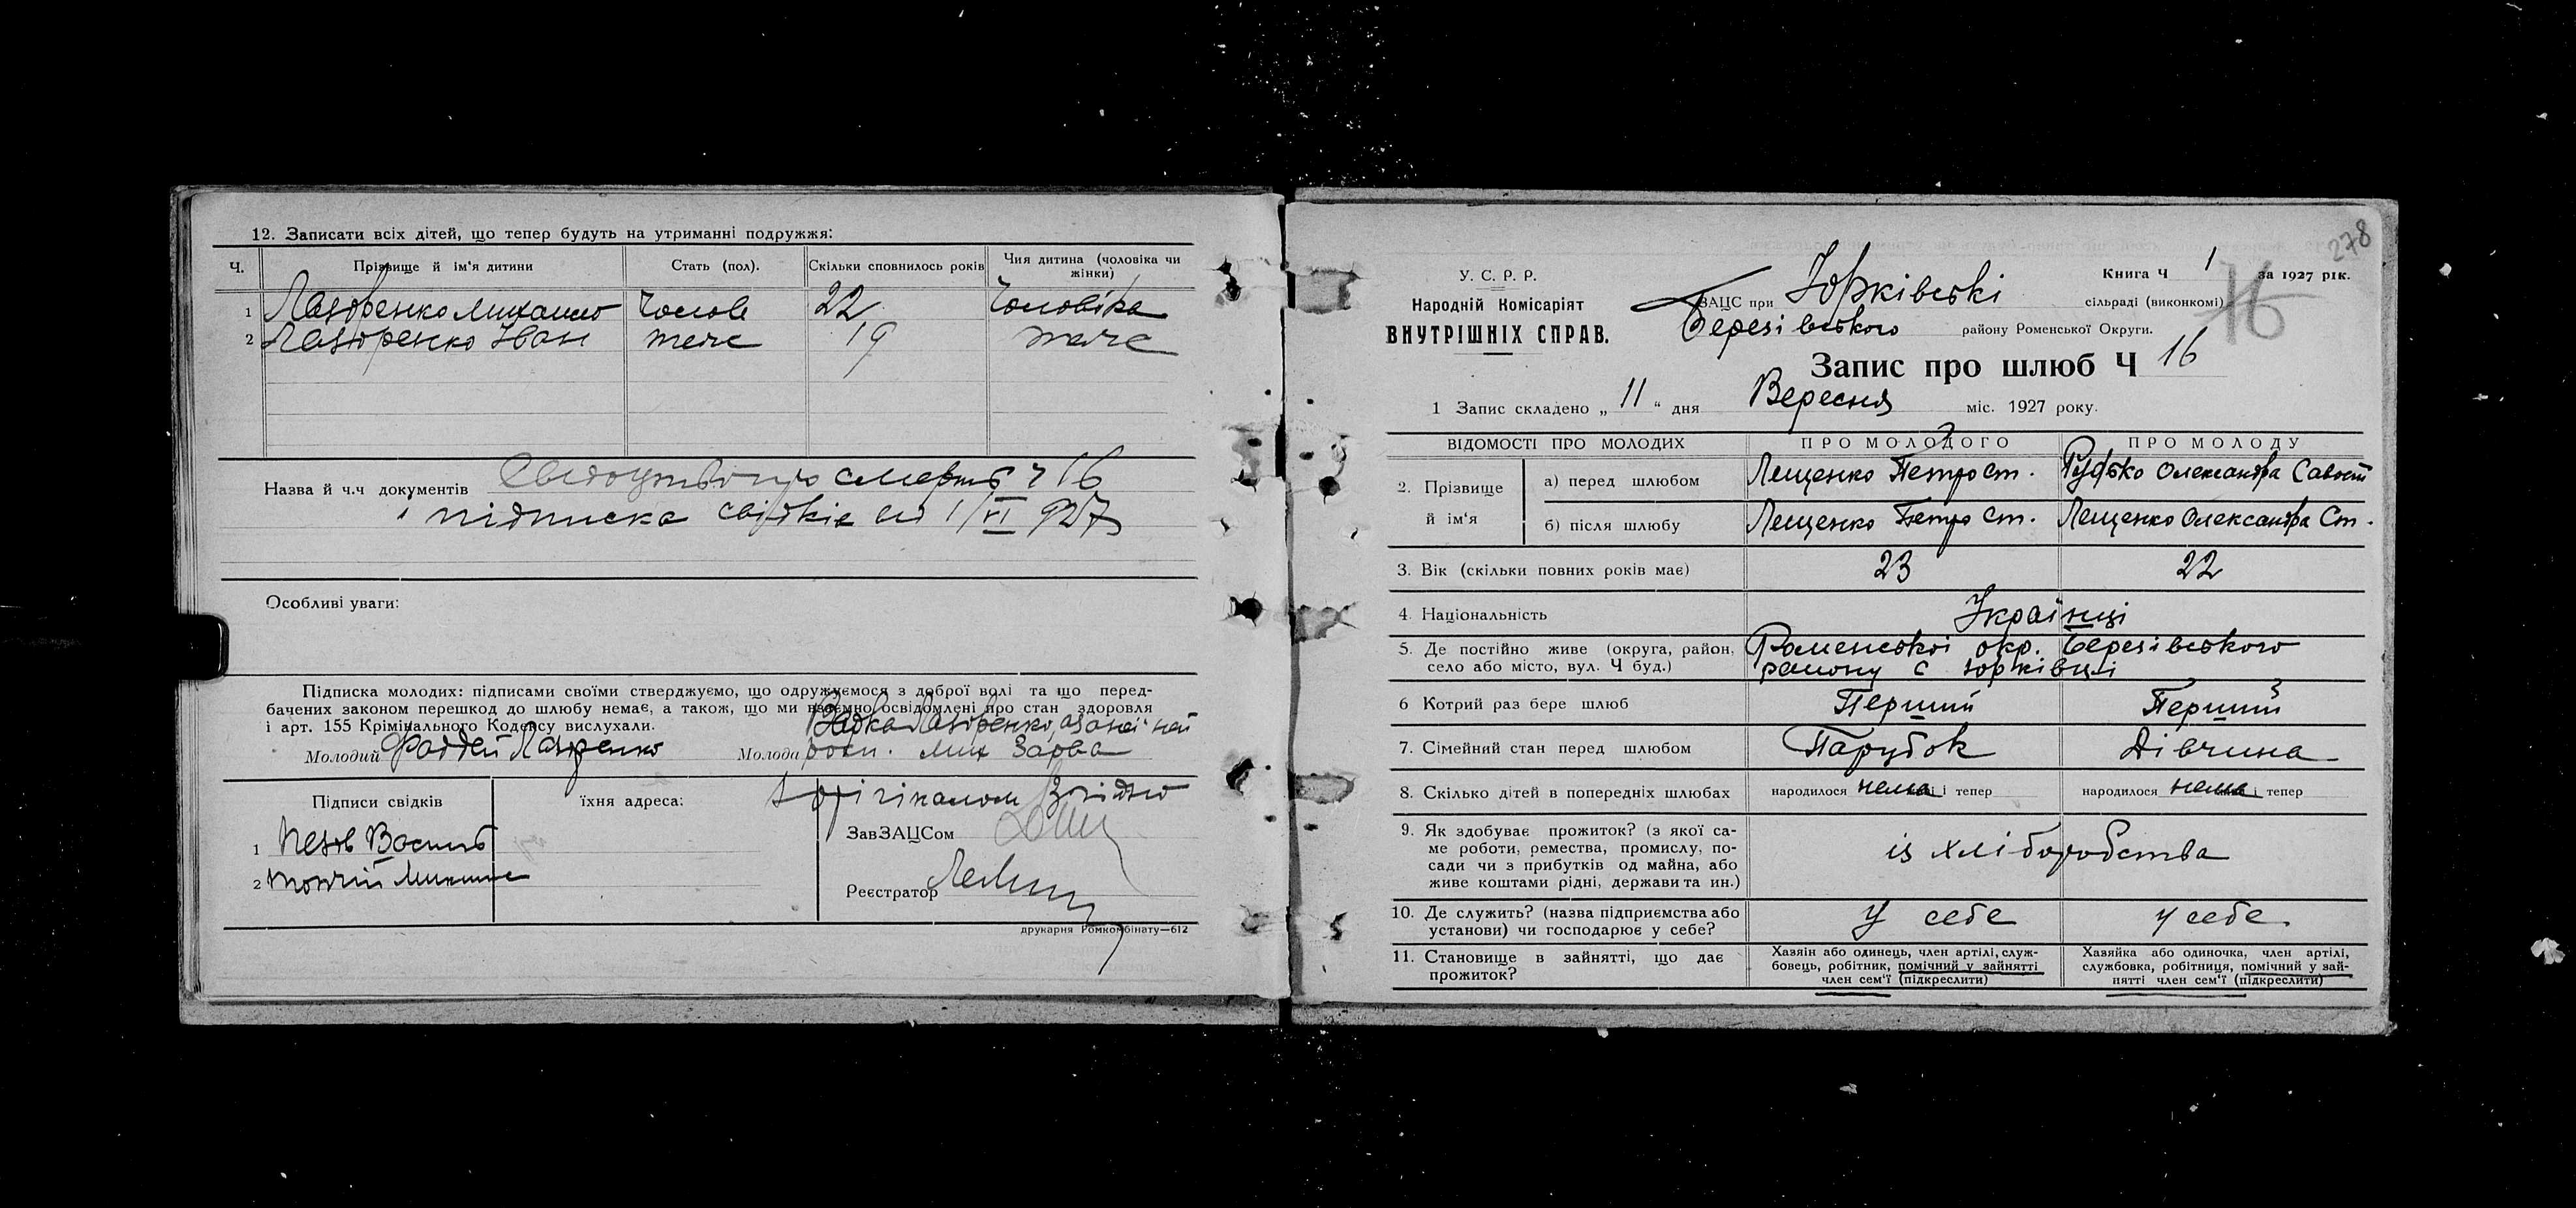 12. Записати всіх дітей, що тепер будуть на утриманні подружжя:
Ч. Прізвище й ім'я дитини Стать (пол). Скільки сповнилось років Чия дитина (чоловіка чи жінки)
1 Лазоренко Михайло Чолов 22 Чоловіка
2 Лазоренко Іван теж 19 теж
Назва й ч.ч документів Свідоцтво про смерть ч 16
і підписка свідків від 1/VI 927
Особливі уваги:
Підписка молодих: підписами своїми стверджуємо, що одружуємося з доброї волі та що перед-
бачених законом перешкод до шлюбу немає, а також, що ми взаємно освідомлені про стан здоровля
і арт. 155 Крімінального Кодексу вислухали.
Молодий Фаддей Лазоренко Молода Лазоренко, а за неї
росп. Мих Зарва
Підписи свідків їхня адреса: з орігіналом Згідно
1 Василь
ЗавЗАЦСом
2
Реєстратор
друкарня Ромкомбінату—612
278
У. С. Р. Р.
Народній Комісаріят
ВНУТРІШНІХ СПРАВ.
Книга Ч 1 за 1927 рік.
16
ЗАЦС при Юрківській сільраді (виконкомі)
Березівського району Роменської Округи.
Запис про шлюб Ч 16
1 Запис складено „ 11 “ дня Вересня міс. 1927 року.
ВІДОМОСТІ ПРО МОЛОДИХ ПРО МОЛОДОГО ПРО МОЛОДУ
2. Прізвище й ім'я
а) перед шлюбом Лещенко Петро Ст. Рудько Олександра Савост
б) після шлюбу Лещенко Петро Ст. Лещенко Олександра Ст.
3. Вік (скільки повних років має) 23 22
4. Національність Українці
5. Де постійно живе (округа, район, село або місто, вул. Ч буд.) Роменської окр. Березівського
району с Юрківці
6 Котрий раз бере шлюб Перший Перший
7. Сімейний стан перед шлюбом Парубок Дівчина
8. Скілько дітей в попередніх шлюбах народилося нема і тепер народилося нема і тепер
9. Як здобуває прожиток? (з якої са-
ме роботи, ремества, промислу, по-
сади чи з прибутків од майна, або
живе коштами рідні, держави та ин.)
із хліборобства
10. Де служить? (назва підприємства або
установи) чи господарює у себе?
У себе у себе
11. Становище в зайнятті, що дає
прожиток?
Хазяін або одинець, член артілі, служ-
бовець, робітник, помічний у зайнятті
член сем'ї (підкреслити)
Хазяйка або одиночка, член артілі,
службовка, робітниця, помічний у зай-
нятті член сем'ї (підкреслити)